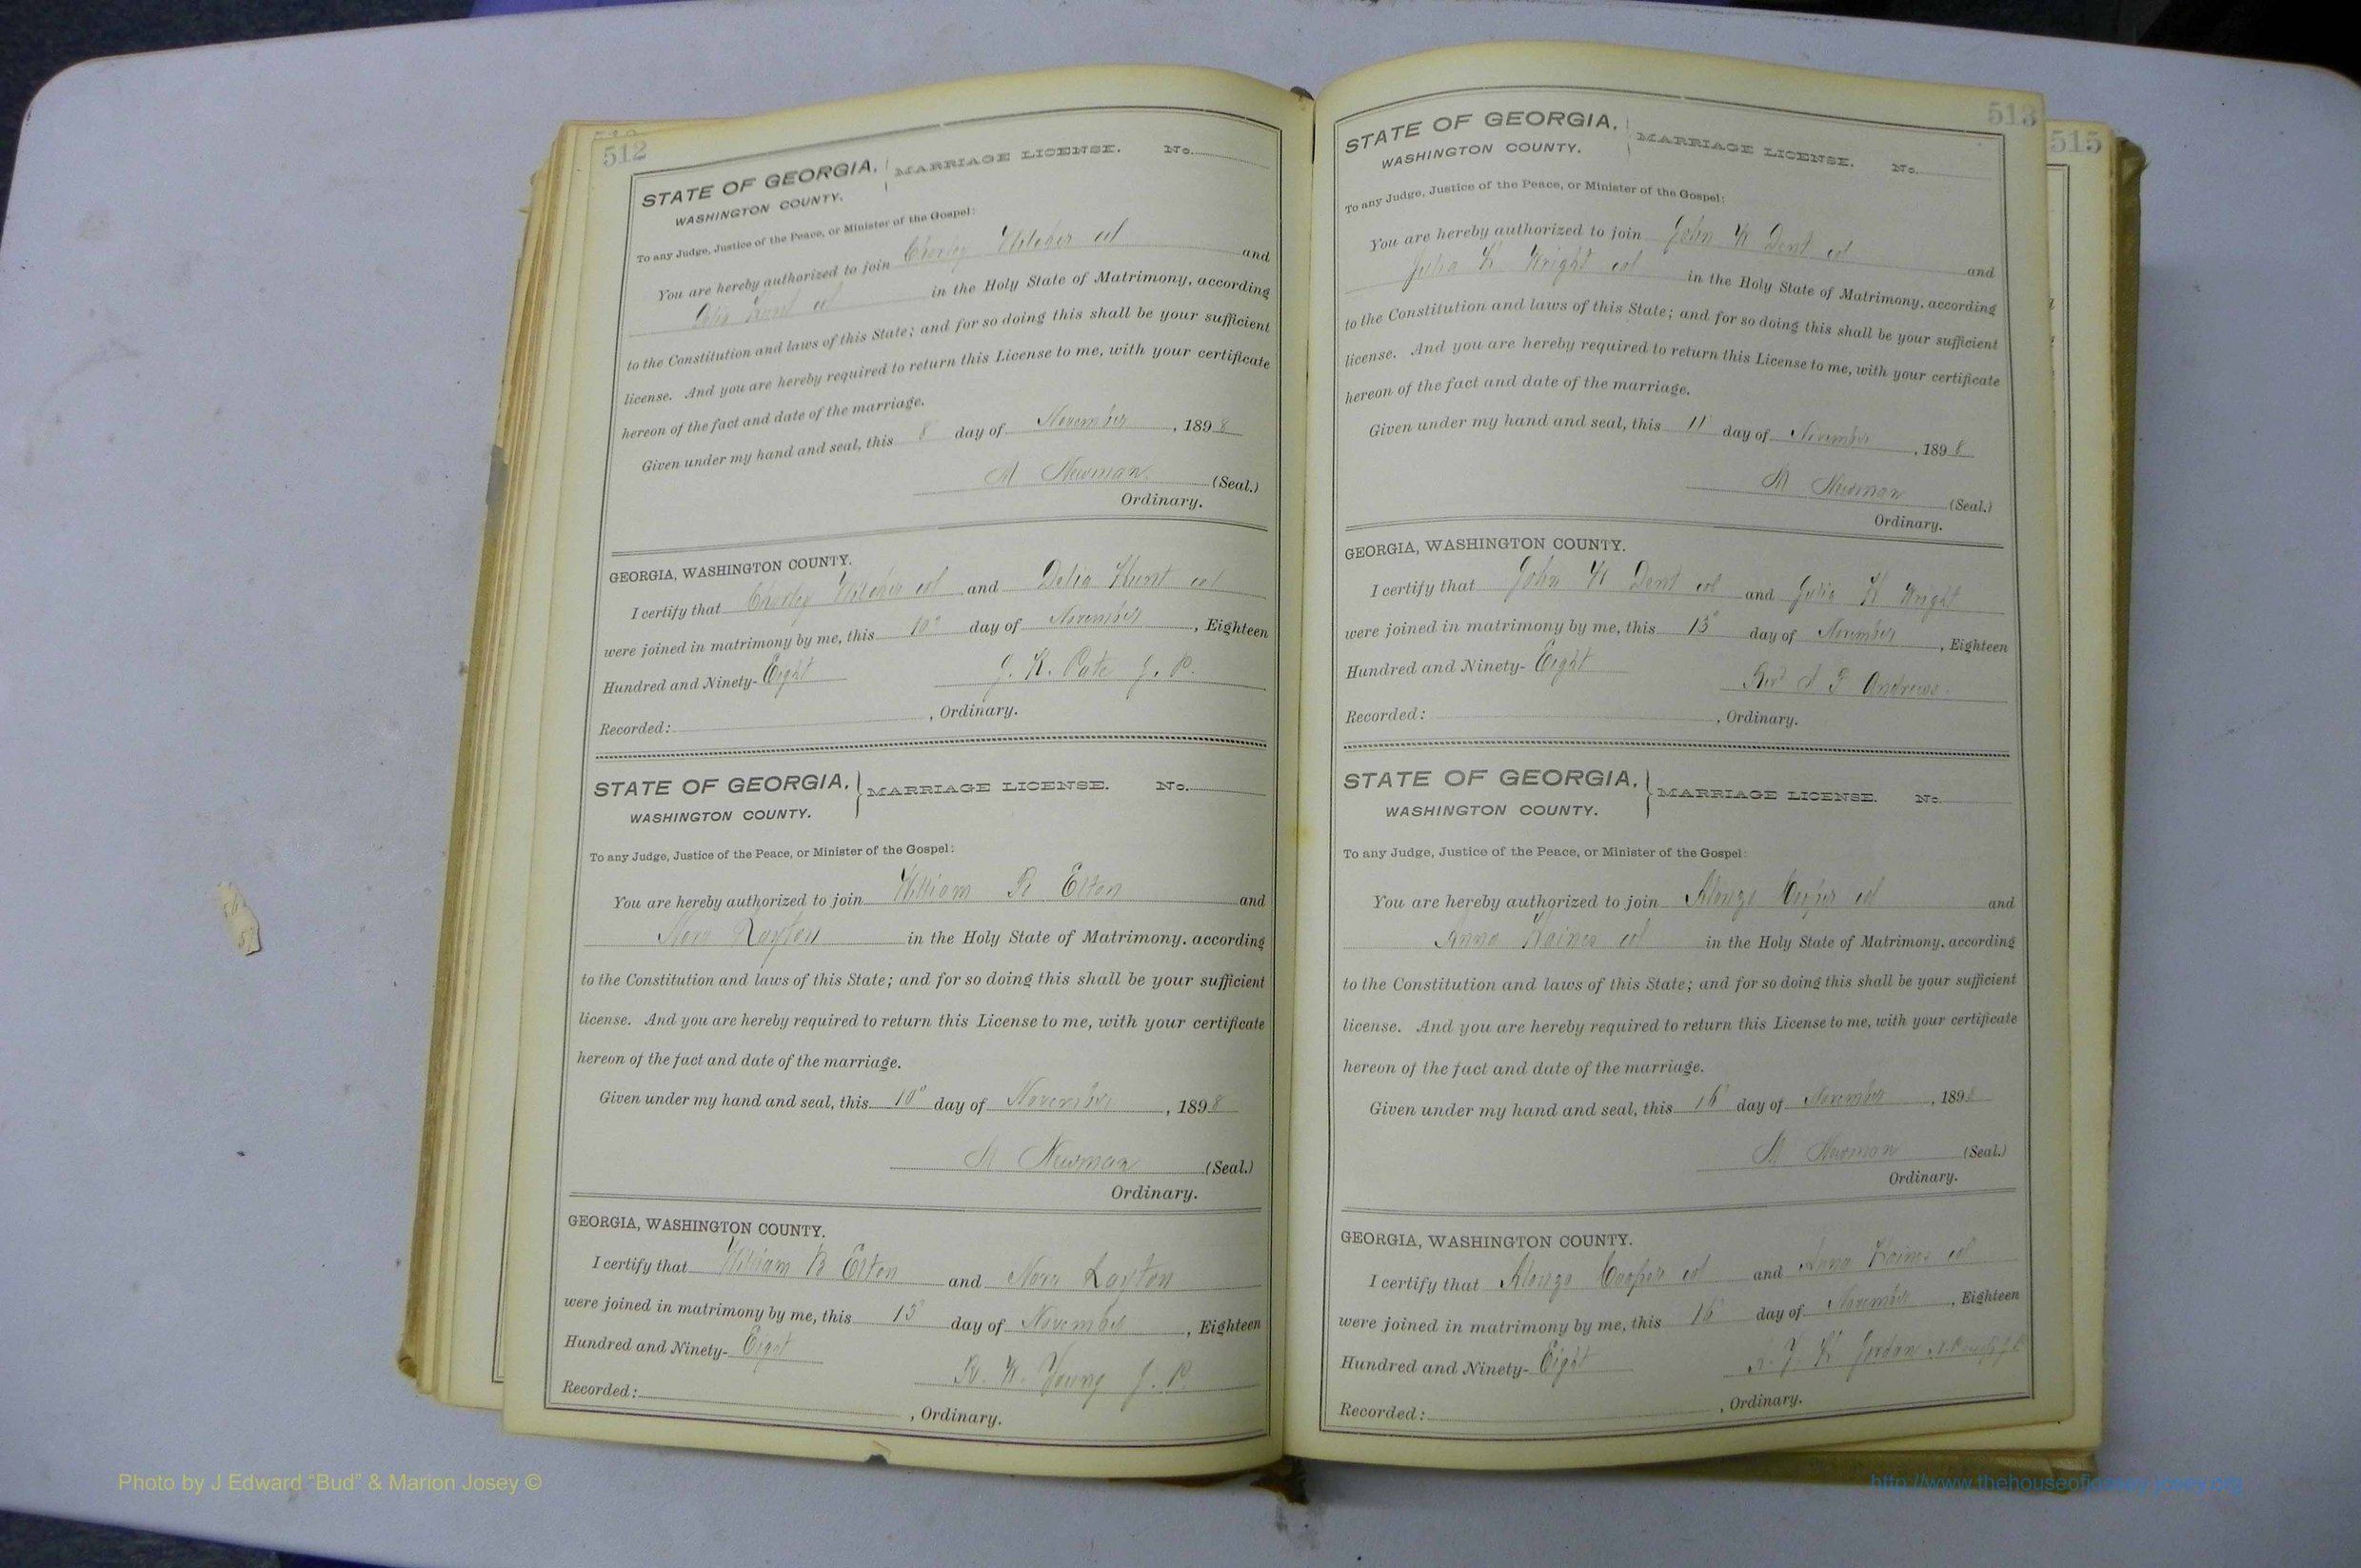 512
STATE OF GEORGIA, MARRIAGE LICENSE. No.
WASHINGTON COUNTY.
To any Judge, Justice of the Peace, or Minister of the Gospel:
You are hereby authorized to join Charley col and
col in the Holy State of Matrimony, according
to the Constitution and laws of this State; and for so doing this shall be your sufficient
license. And you are hereby required to return this License to me, with your certificate
hereon of the fact and date of the marriage.
Given under my hand and seal, this 8 day of November, 1898
M Newman (Seal.)
Ordinary.
GEORGIA, WASHINGTON COUNTY.
I certify that Charley col and Delia Hunt col
were joined in matrimony by me, this 10" day of November, Eighteen
Hundred and Ninety-Eight J. K. Pate J. P.
Recorded: , Ordinary.
STATE OF GEORGIA, MARRIAGE LICENSE. No.
WASHINGTON COUNTY.
To any Judge, Justice of the Peace, or Minister of the Gospel:
You are hereby authorized to join William R Elton and
Nora Layton in the Holy State of Matrimony, according
to the Constitution and laws of this State; and for so doing this shall be your sufficient
license. And you are hereby required to return this License to me, with your certificate
hereon of the fact and date of the marriage.
Given under my hand and seal, this 10" day of November, 1898
M Newman (Seal.)
Ordinary.
GEORGIA, WASHINGTON COUNTY.
I certify that William R Elton and Nora Layton
were joined in matrimony by me, this 13 day of November, Eighteen
Hundred and Ninety-Eight R. W. Young J. P.
Recorded: , Ordinary.
513
STATE OF GEORGIA, MARRIAGE LICENSE. No.
WASHINGTON COUNTY.
To any Judge, Justice of the Peace, or Minister of the Gospel:
You are hereby authorized to join John W Dent col and
Julia H Wright col in the Holy State of Matrimony, according
to the Constitution and laws of this State; and for so doing this shall be your sufficient
license. And you are hereby required to return this License to me, with your certificate
hereon of the fact and date of the marriage.
Given under my hand and seal, this 11 day of November, 1898
M Newman (Seal.)
Ordinary.
GEORGIA, WASHINGTON COUNTY.
I certify that John W Dent col and Julia H Wright
were joined in matrimony by me, this 13 day of November, Eighteen
Hundred and Ninety-Eight Rev Andrews
Recorded: , Ordinary.
STATE OF GEORGIA, MARRIAGE LICENSE. No.
WASHINGTON COUNTY.
To any Judge, Justice of the Peace, or Minister of the Gospel:
You are hereby authorized to join Alonzo Cooper col and
Anna Haines col in the Holy State of Matrimony, according
to the Constitution and laws of this State; and for so doing this shall be your sufficient
license. And you are hereby required to return this License to me, with your certificate
hereon of the fact and date of the marriage.
Given under my hand and seal, this 16 day of November, 1898
M Newman (Seal.)
Ordinary.
GEORGIA, WASHINGTON COUNTY.
I certify that Alonzo Cooper col and Anna Haines col
were joined in matrimony by me, this 16 day of November, Eighteen
Hundred and Ninety-Eight Jordan
Recorded: , Ordinary.
515
Photo by J Edward “Bud” & Marion Josey ©